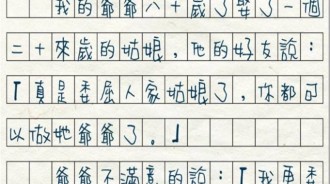 我的爺爺八十歲了娶了一個
二十來歲的姑娘，他的好友說：
「真是委屈人家姑娘了，你都可
以做她爺爺了。」
爺爺不滿意的說：「我更委